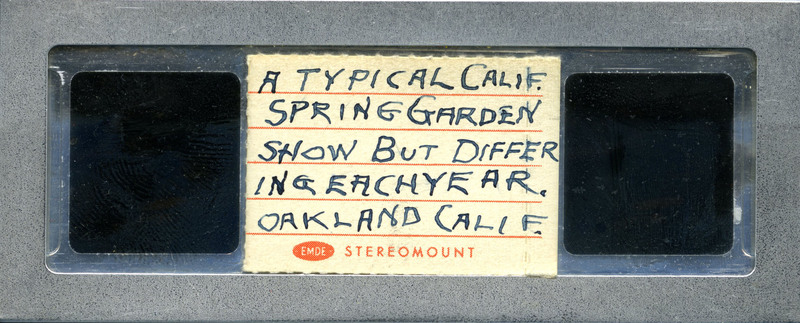 A TYPICAL CALIF.
SPRING GARDEN
SHOW BUT DIFFER
ING EACH YEAR.
OAKLAND CALIF.
EMDE STEREOMOUNT